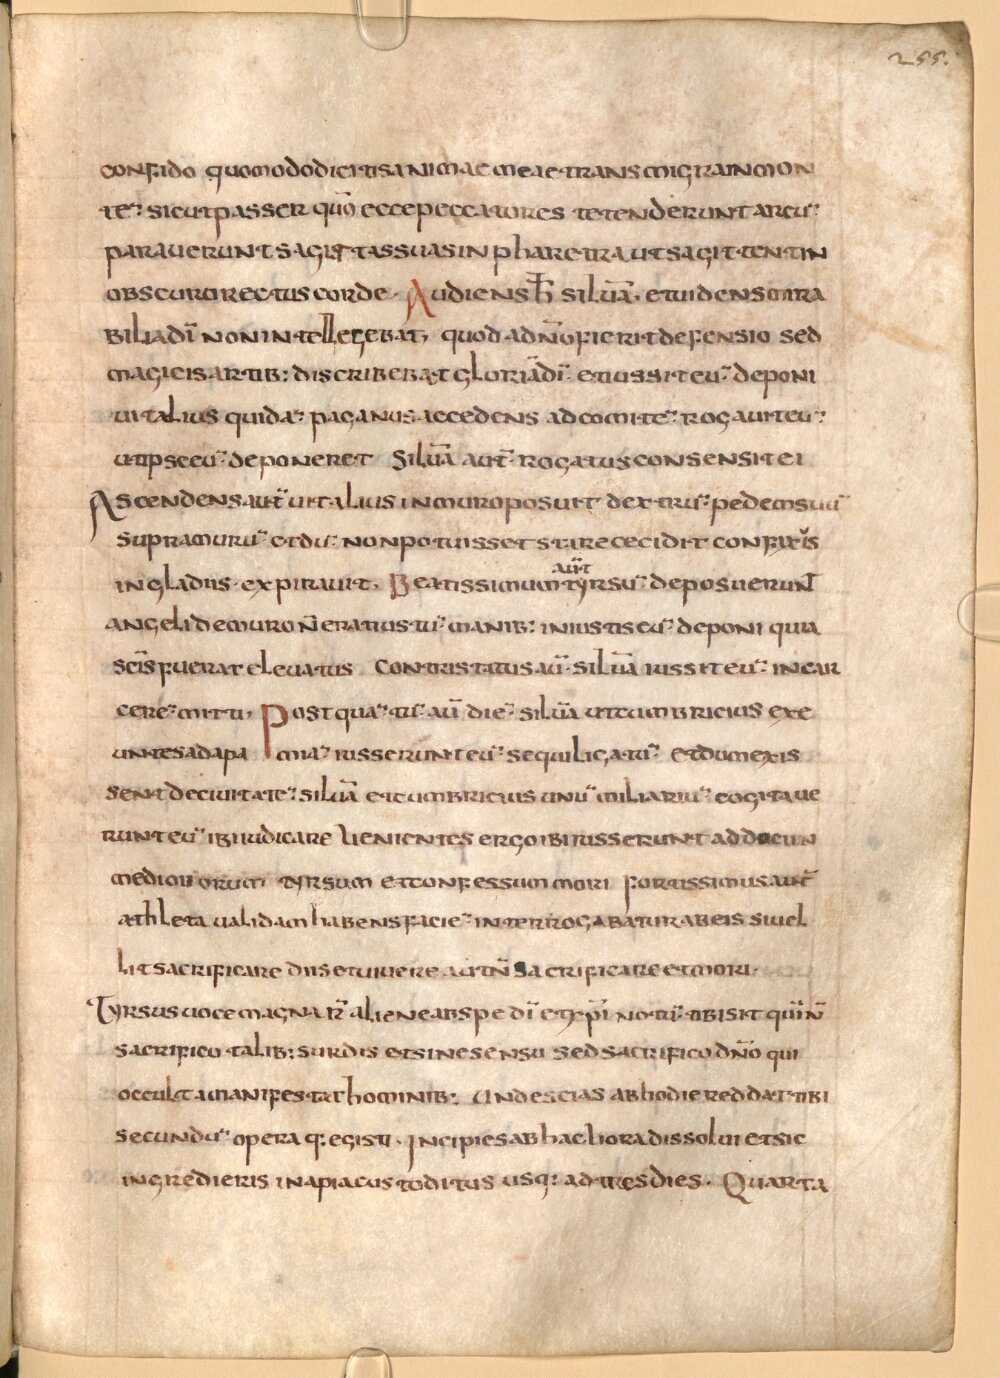 255.
confido quomododicitisanimae meae·transmigrainmon
te᷑ sicutpasser quō eccepeccatores tetenderuntarcu᷑
parauerunt sagittassuasinpharetrautsagittentin
obscurorectuscorde· Audiens h̄ siluā, etuidensmira
biliadī nonintellegebat, quod adn̄ofieritdefensio sed
magicisartib: discribebat gloriādī· etiussiteu᷑ deponi
uitalius quida᷑ paganus accedens adcomite᷑ rogauiteu᷑
utipseeu᷑ deponeret Siluā aut̄ rogatusconsensitei
Ascendensaut̄ uitalius inmuroposuit dextru᷑ pedemsuu᷑
supramuru᷑ etdu᷑ nonpotuissetstarececidit confixus
ingladiis· expirauit, Beatissimum aut̄ tyrsu᷑ deposuerunt
angelidemuro n̄eratiustu᷑ manib: iniustiseu᷑ deponi quia
sc̄isfuerateleuatus Contristatusau̅· siluā iussiteu᷑ incar
cere᷑ mitti, Postqua᷑ tu᷑ au̅ die᷑ siluā uitumbricius exe
untesadapa mia᷑ iusserunteu᷑ sequiligatu᷑ etdumexis
sentdeciuitate᷑ siluā etumbricius unu᷑ miliariu᷑ cogitaue
runteu᷑ ibiiudicare Uenientes ergoibiiusserunt adducun
mediomorum tyrsum etconfessummori fortissimusaut̄
athleta ualidamhabensfacie᷑ interrogabaturabeis siuel
litsacrificare diisetuiuere autn̄ sacrificareetmori·
Tyrsusuocemagna r̄ alieneabspe dī etxp̄i notu᷑ tibisit quīn̄
sacrifico talib: surdis etsinesensu sedsacrifico dn̄o qui
occultamanifestathominib: Undescias abhodiereddattibi
secundu᷑ opera q: egisti· Incipiesabhachoradissolui etsic
ingredieris inapiacustoditus usq: adtresdies· Quarta